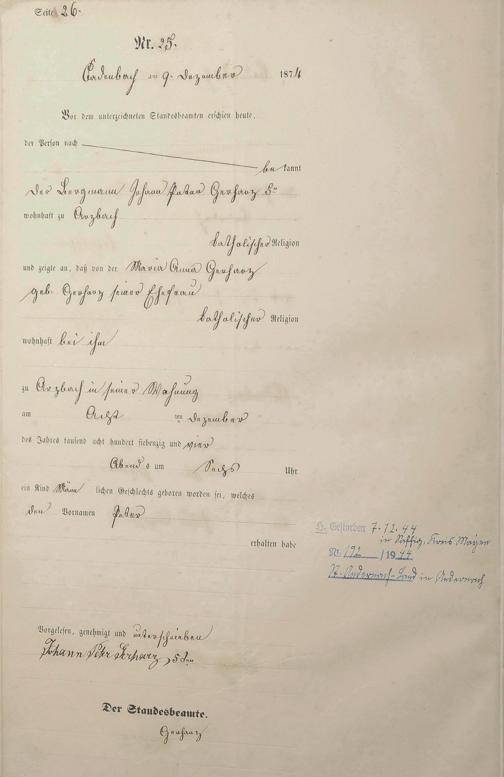 Seite 26.
Nr. 25.
Cadenbach am 9. Dezember 1874
Vor dem unterzeichneten Standesbeamten erschien heute,
der Person nach
bekannt
der Bergmann Johann Peter Gerharz 5te
wohnhaft zu Arzbach
katholischer Religion
und zeigte an, daß von der Maria Anna Gerharz
geb. Gerharz seiner Ehefrau
katholischer Religion
wohnhaft bei ihm
zu Arzbach in seiner Wohnung
am Acht ten Dezember
des Jahres tausend acht hundert siebenzig und vier
Abends um Sechs Uhr
ein Kind Männlichen Geschlechts geboren worden sei, welches
den Vornamen Peter
erhalten habe
H. Gestorben 7.12.44
in Saffig, Kreis Mayen
Nr. 192 /1944
St. Andernach-Land in Andernach
Vorgelesen, genehmigt und unterschrieben
Johann Peter Gerharz 5ten
Der Standesbeamte.
Gerharz